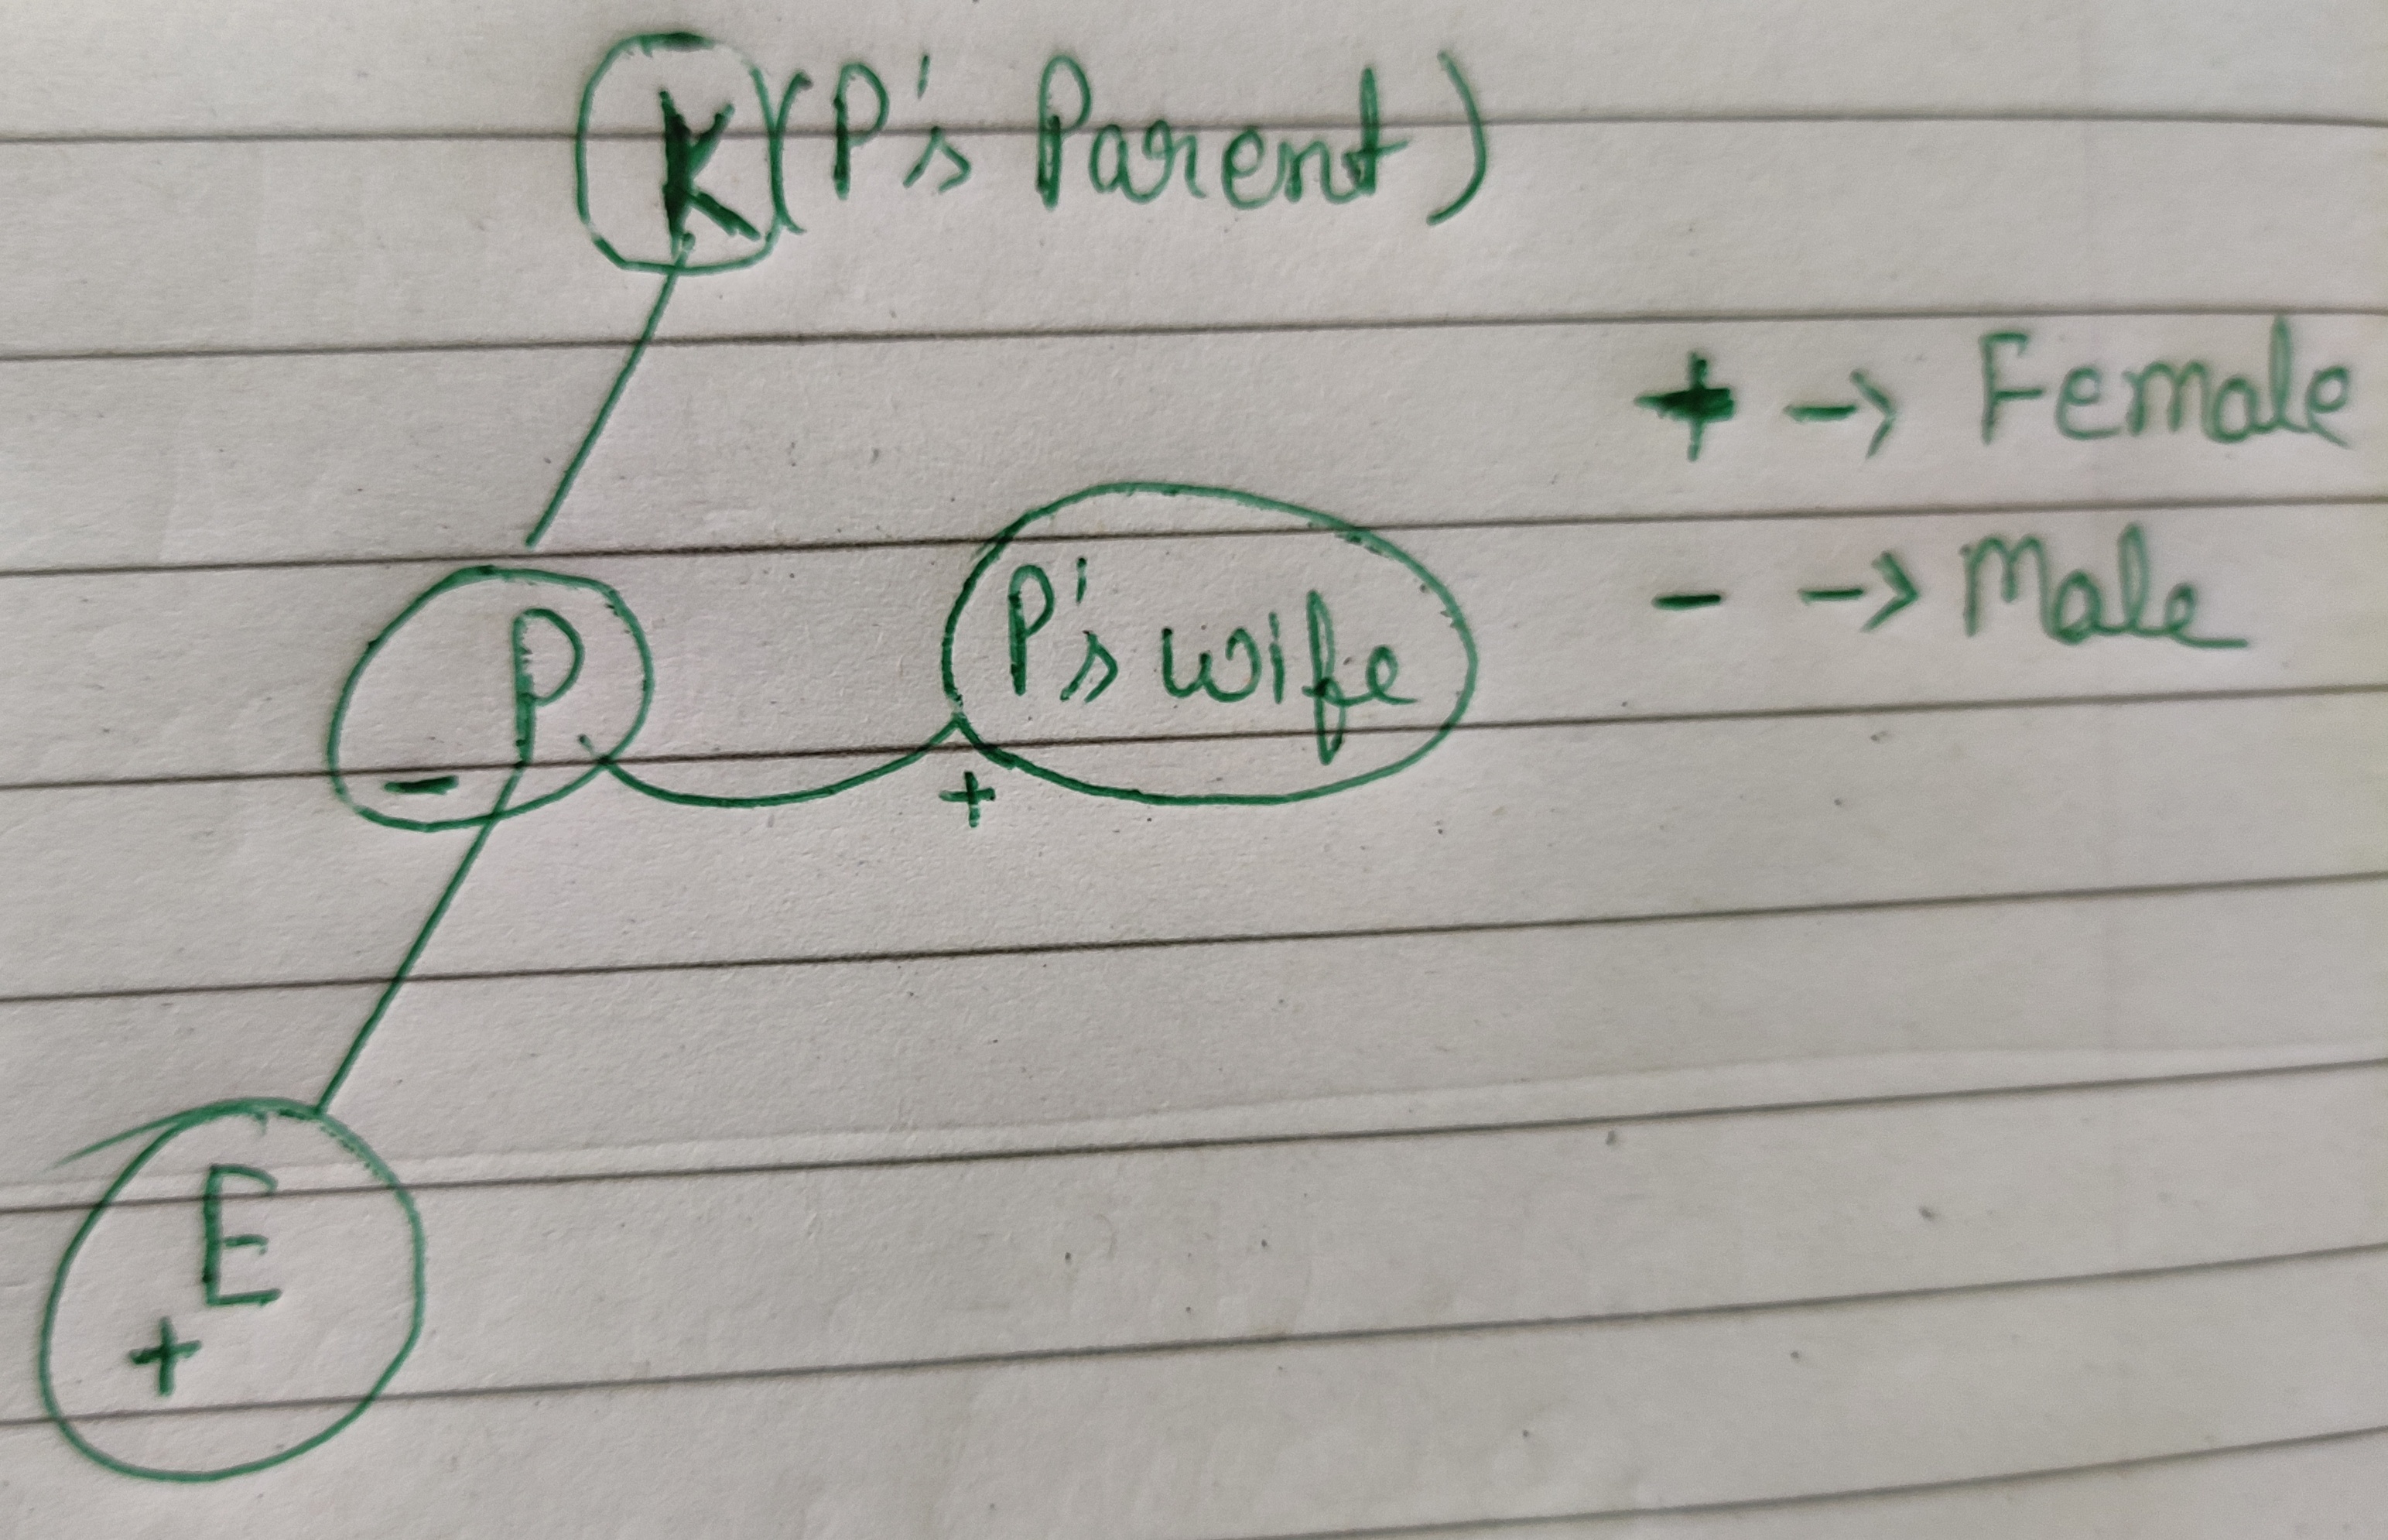 K (P's Parent)
+ -> Female
- -> Male
P
-
P's wife
+
E
+